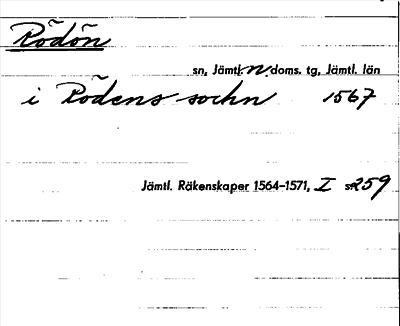 Rödön
sn, Jämtl. n. doms. tg, Jämtl. län
i Rödens sochn 1567
Jämtl. Räkenskaper 1564-1571, I s. 259